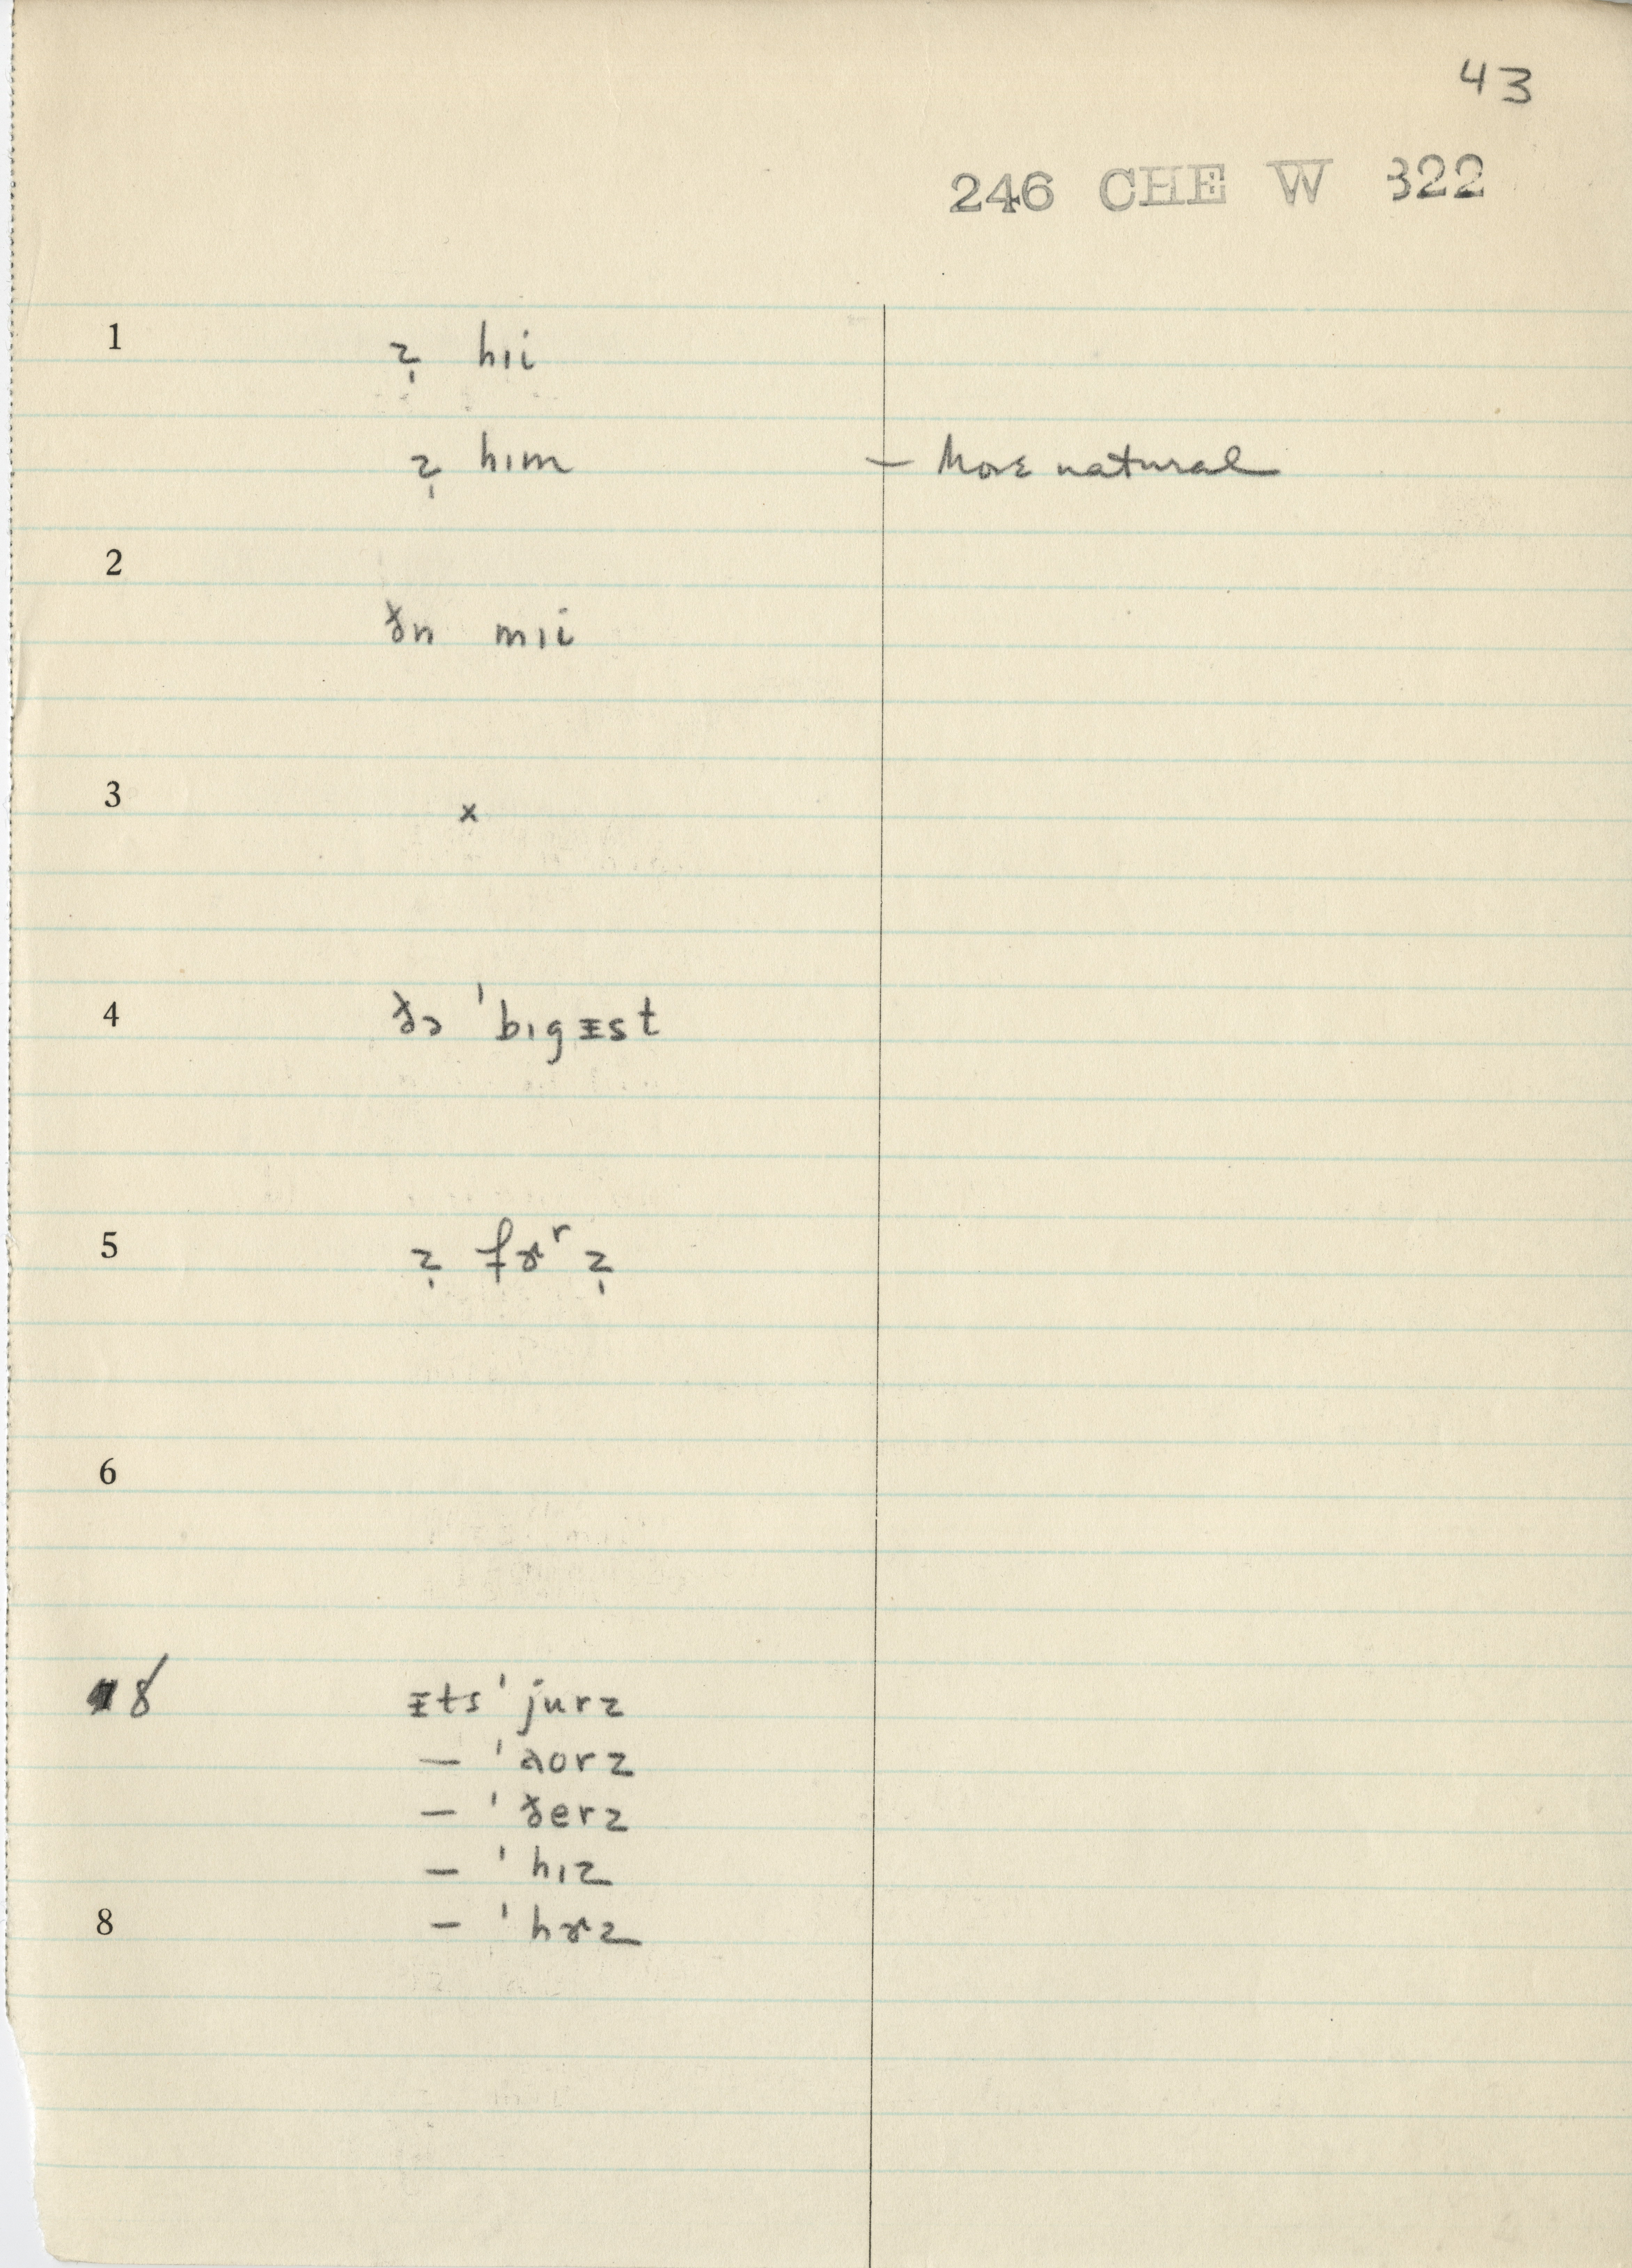 43
246 CHE W 322
1 z̩ hɪi
z̩ hɪm – More natural
2 ðn mɪi
3 x
4 ðə ˈbɪgɪ̵st
5 z̩ fɚʳ z̩
6
8 ɪ̵ts ˈjurz
– ˈaorz
– ˈðerz
– ˈhɪz
8 – ˈhɚz